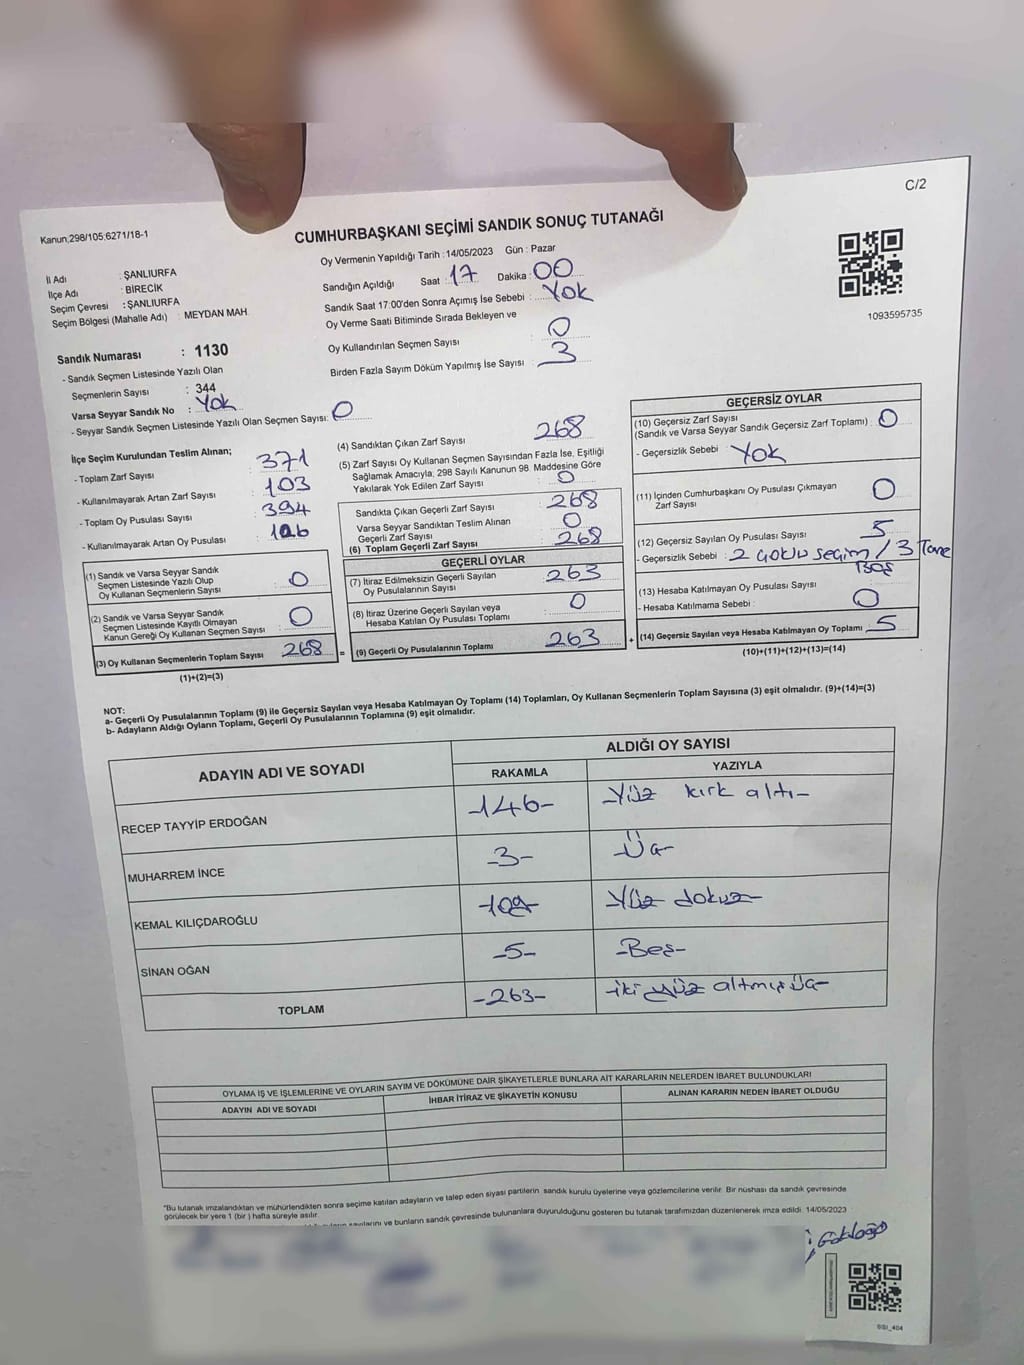 C/2
Kanun,298/105;6271/18-1
CUMHURBAŞKANI SEÇİMİ SANDIK SONUÇ TUTANAĞI
Oy Vermenin Yapıldığı Tarih : 14/05/2023 Gün : Pazar
İl Adı : ŞANLIURFA
İlçe Adı : BİRECİK
Seçim Çevresi : ŞANLIURFA
Seçim Bölgesi (Mahalle Adı) : MEYDAN MAH.
Sandığın Açıldığı Saat : 17 Dakika : 00
Sandık Saat 17:00'den Sonra Açımış İse Sebebi : Yok
Oy Verme Saati Bitiminde Sırada Bekleyen ve
Oy Kullandırılan Seçmen Sayısı : 0
Birden Fazla Sayım Döküm Yapılmış İse Sayısı : 3
1093595735
Sandık Numarası : 1130
- Sandık Seçmen Listesinde Yazılı Olan
Seçmenlerin Sayısı : 344
Varsa Seyyar Sandık No : Yok
- Seyyar Sandık Seçmen Listesinde Yazılı Olan Seçmen Sayısı: 0
İlçe Seçim Kurulundan Teslim Alınan;
- Toplam Zarf Sayısı : 371
- Kullanılmayarak Artan Zarf Sayısı : 103
- Toplam Oy Pusulası Sayısı : 394
- Kullanılmayarak Artan Oy Pusulası :
(1) Sandık ve Varsa Seyyar Sandık
Seçmen Listesinde Yazılı Olup
Oy Kullanan Seçmenlerin Sayısı : 0
(2) Sandık ve Varsa Seyyar Sandık
Seçmen Listesinde Kayıtlı Olmayan
Kanun Gereği Oy Kullanan Seçmen Sayısı : 0
(3) Oy Kullanan Seçmenlerin Toplam Sayısı 268 =
(1)+(2)=(3)
(4) Sandıktan Çıkan Zarf Sayısı : 268
(5) Zarf Sayısı Oy Kullanan Seçmen Sayısından Fazla İse, Eşitliği
Sağlamak Amacıyla, 298 Sayılı Kanunun 98. Maddesine Göre
Yakılarak Yok Edilen Zarf Sayısı : 0
Sandıkta Çıkan Geçerli Zarf Sayısı : 268
Varsa Seyyar Sandıktan Teslim Alınan
Geçerli Zarf Sayısı : 0
(6) Toplam Geçerli Zarf Sayısı : 268
GEÇERLİ OYLAR
(7) İtiraz Edilmeksizin Geçerli Sayılan
Oy Pusulalarının Sayısı : 263
(8) İtiraz Üzerine Geçerli Sayılan veya
Hesaba Katılan Oy Pusulası Toplamı : 0
(9) Geçerli Oy Pusulalarının Toplamı : 263 +
GEÇERSİZ OYLAR
(10) Geçersiz Zarf Sayısı
(Sandık ve Varsa Seyyar Sandık Geçersiz Zarf Toplamı) : 0
- Geçersizlik Sebebi : Yok
(11) İçinden Cumhurbaşkanı Oy Pusulası Çıkmayan
Zarf Sayısı : 0
(12) Geçersiz Sayılan Oy Pusulası Sayısı : 5
- Geçersizlik Sebebi : 2 çoklu seçim / 3 Tane
Boş
(13) Hesaba Katılmayan Oy Pusulası Sayısı : 0
- Hesaba Katılmama Sebebi :
(14) Geçersiz Sayılan veya Hesaba Katılmayan Oy Toplamı : 5
(10)+(11)+(12)+(13)=(14)
NOT:
a- Geçerli Oy Pusulalarının Toplamı (9) ile Geçersiz Sayılan veya Hesaba Katılmayan Oy Toplamı (14) Toplamları, Oy Kullanan Seçmenlerin Toplam Sayısına (3) eşit olmalıdır. (9)+(14)=(3)
b- Adayların Aldığı Oyların Toplamı, Geçerli Oy Pusulalarının Toplamına (9) eşit olmalıdır.
ADAYIN ADI VE SOYADI
ALDIĞI OY SAYISI
RAKAMLA YAZIYLA
RECEP TAYYİP ERDOĞAN -146- -Yüz kırk altı-
MUHARREM İNCE -3- -Üç-
KEMAL KILIÇDAROĞLU -109- -Yüz dokuz-
SİNAN OĞAN -5- -Beş-
TOPLAM -263- -iki yüz altmış üç-
OYLAMA İŞ VE İŞLEMLERİNE VE OYLARIN SAYIM VE DÖKÜMÜNE DAİR ŞİKAYETLERLE BUNLARA AİT KARARLARIN NELERDEN İBARET BULUNDUKLARI
ADAYIN ADI VE SOYADI İHBAR İTİRAZ VE ŞİKAYETİN KONUSU ALINAN KARARIN NEDEN İBARET OLDUĞU
"Bu tutanak imzalandıktan ve mühürlendikten sonra seçime katılan adayların ve talep eden siyasi partilerin sandık kurulu üyelerine veya gözlemcilerine verilir. Bir nüshası da sandık çevresinde
görülecek bir yere 1 (bir) hafta süreyle asılır.
sayılarını ve bunların sandık çevresinde bulunanlara duyurulduğunu gösteren bu tutanak tarafımızdan düzenlenerek imza edildi. 14/05/2023